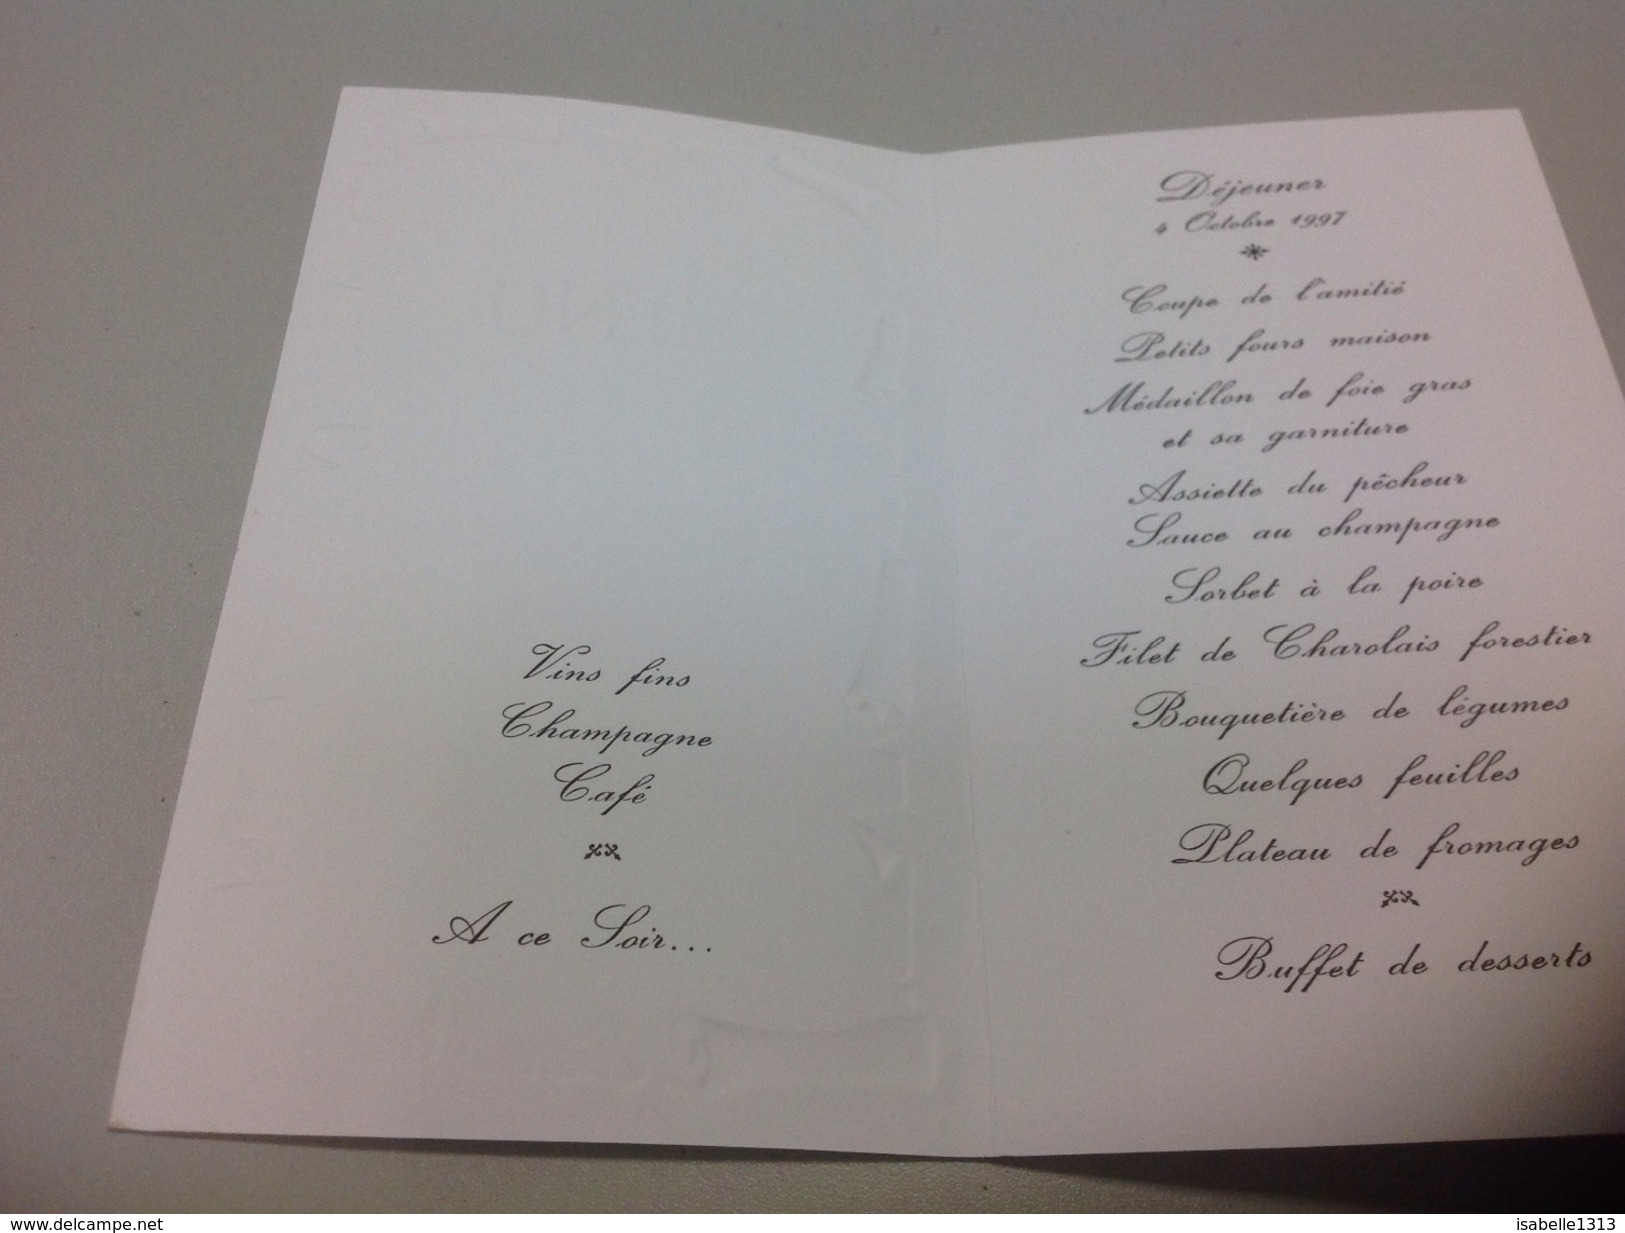 Vins fins
Champagne
Café
A ce Soir...
Déjeuner
4 Octobre 1997
Coupe de l'amitié
Petits fours maison
Médaillon de foie gras
et sa garniture
Assiette du pêcheur
Sauce au champagne
Sorbet à la poire
Filet de Charolais forestier
Bouquetière de légumes
Quelques feuilles
Plateau de fromages
Buffet de desserts
www.delcampe.net
isabelle1313